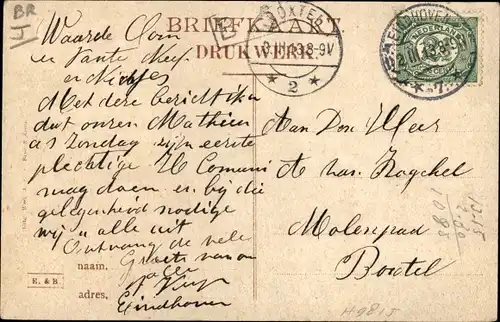 BR
4
BRIEFKAART
DRUKWERK.
BOXTEL
8-9V
2
EINDHOVEN
NEDERLAND
7
Waarde Oom
en Tante Neef
en Nichtjes
Met deze bericht ik u
dat onzen Mathieu
as Zondag zijn eerste
plechtige H Comuni
mag doen en bij die
gelegenheid nodige
wij u alle uit
Ontvang de vele
Groete van on
allen
Eindhoven
naam.
adres.
E. & B.
Aan Den Heer
A van
Molenpad
Boxtel